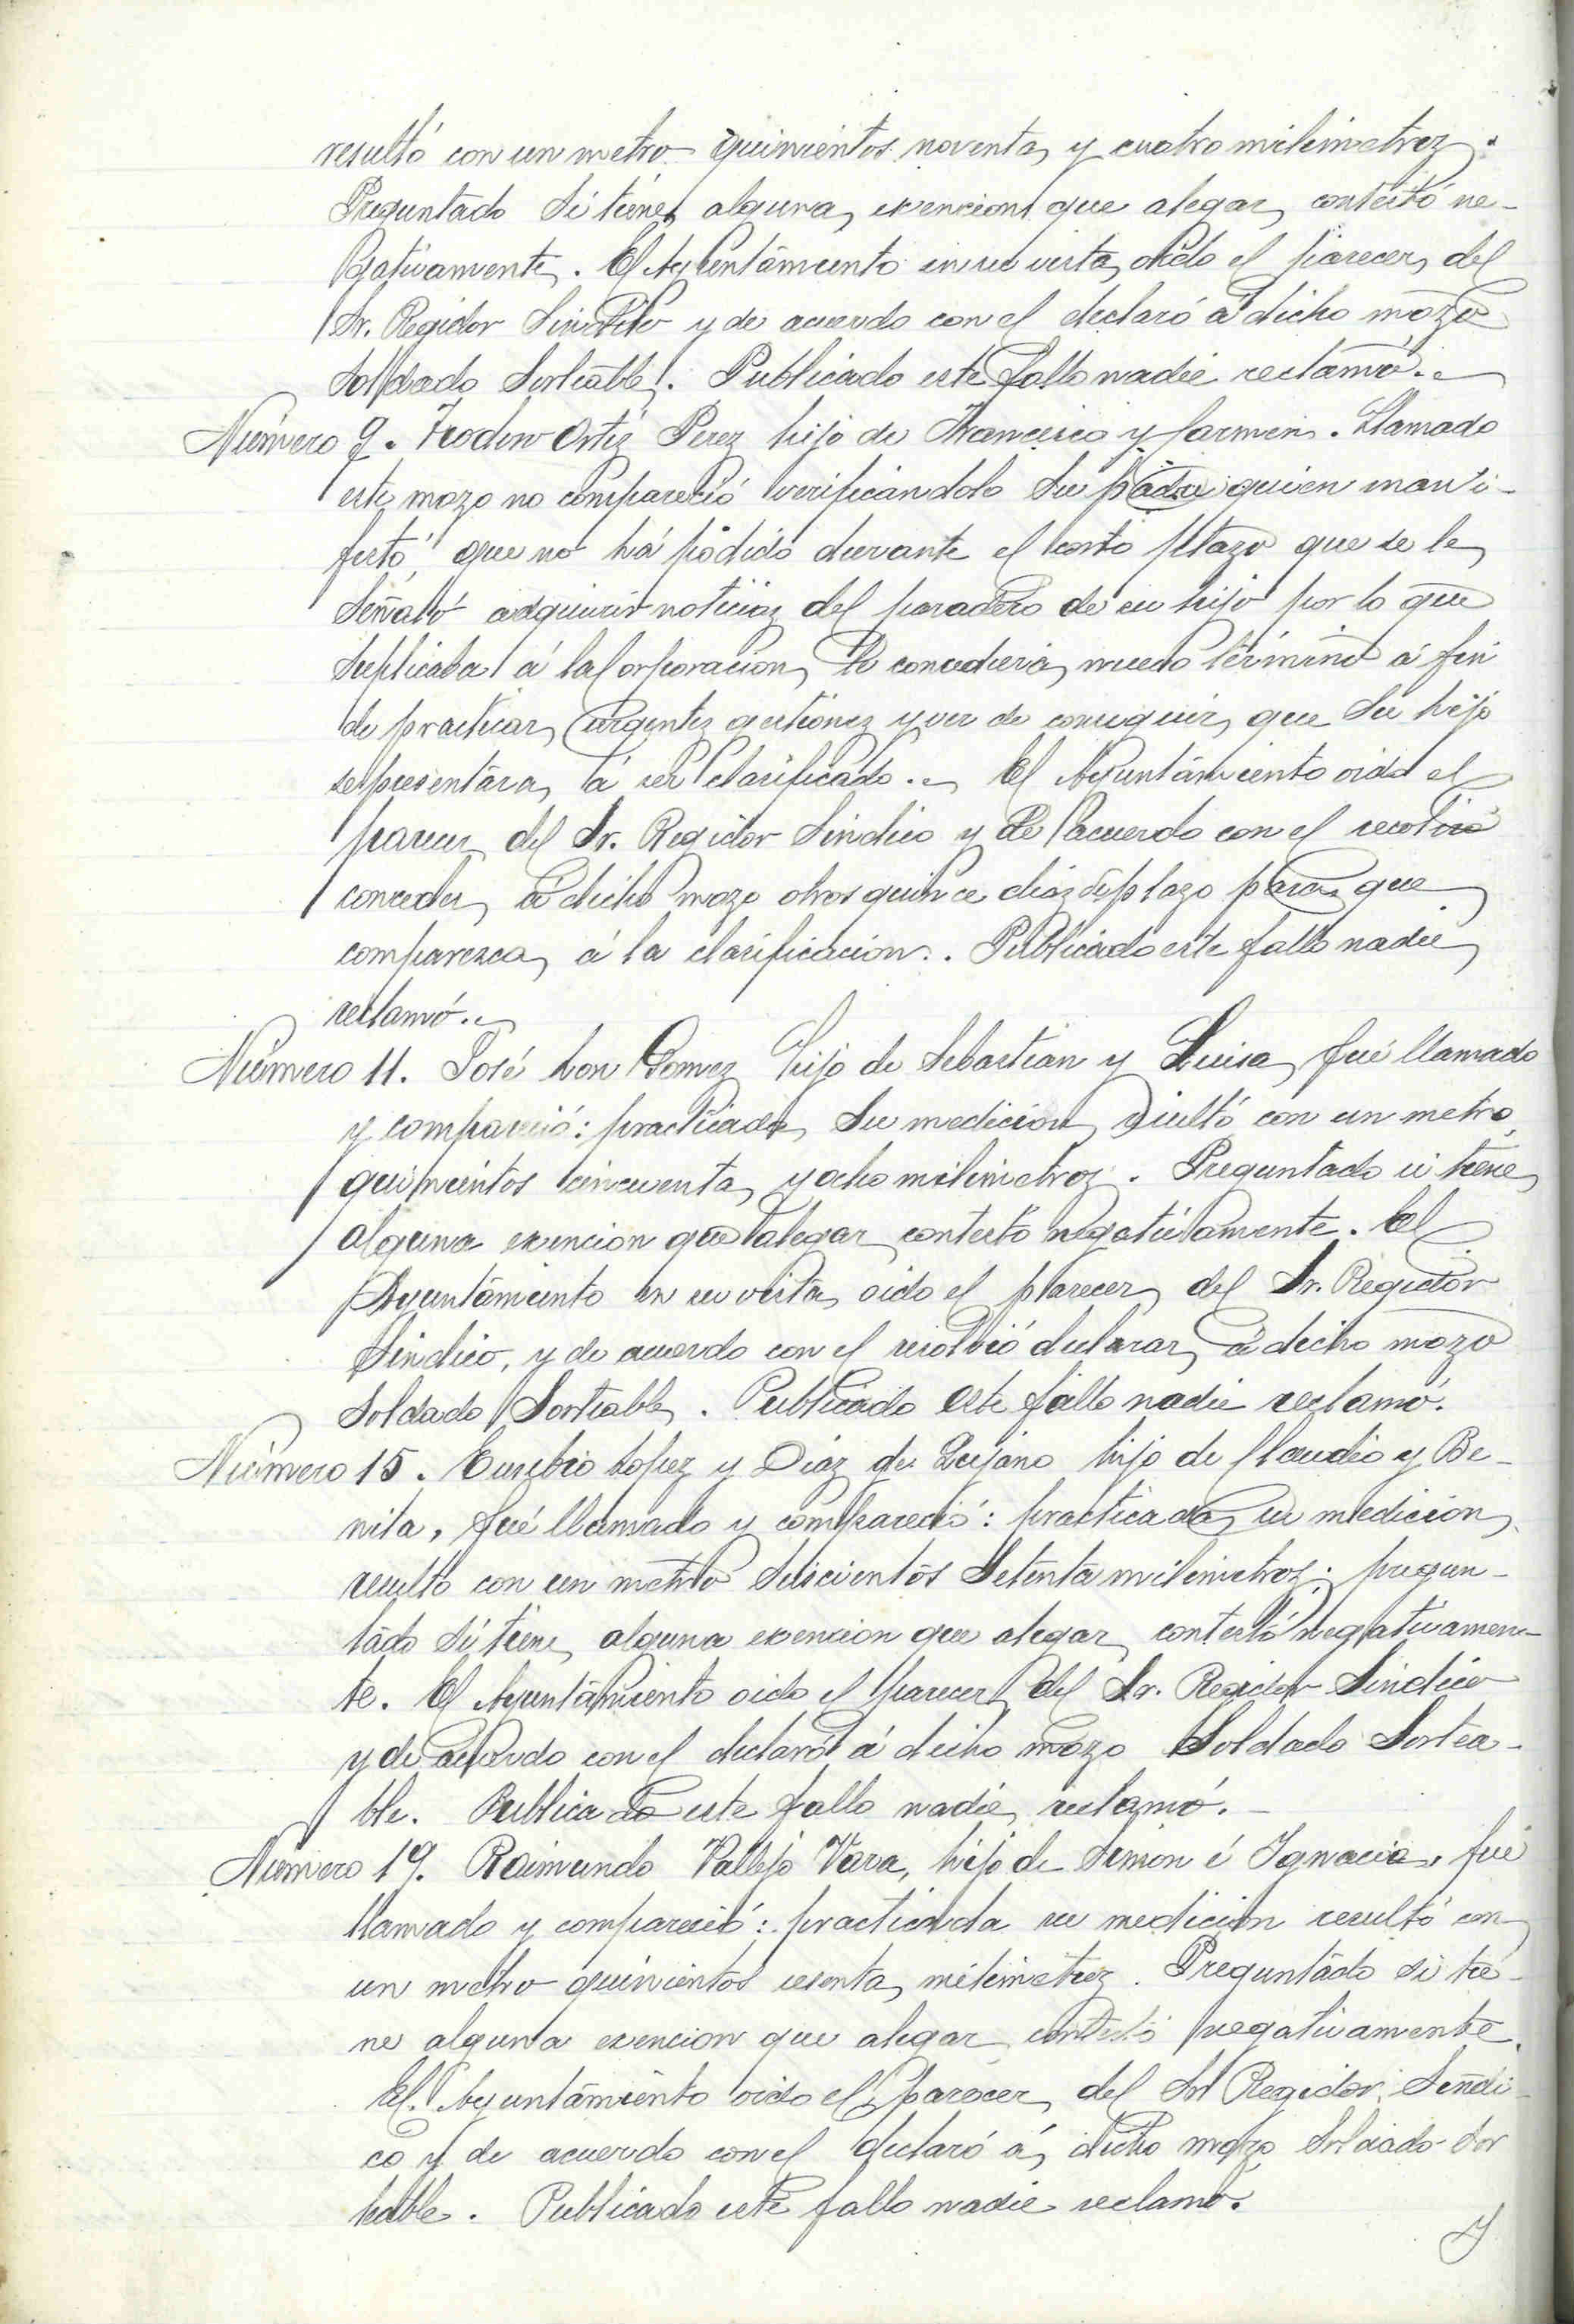 resultó con un metro quinientos noventa y cuatro milimetroz.
Preguntado si tiene alguna exencion que alegar contestó ne-
gativamente. El Ayuntamiento en su vista, oido el parecer del
Sr. Regidor Sindico y de acuerdo con el declaró á dicho mozo
Soldado Sorteable. Publicado este fallo nadie reclamó.
Número 9. Ortiz Perez hijo de Francisco y Carmen. Llamado
este mozo no compareció verificandolo su padre quien mani-
festó que no há podido durante el corto plazo que se le
señaló adquirir noticiaz del paradero de su hijo por lo que
suplicaba á la Corporacion le concediera nuevo término á fin
de practicar urgentez gestionez y ver de conseguir que su hijo
se presentára á ser clasificado. El Ayuntamiento oido el
parecer del Sr. Regidor Sindico y de acuerdo con el resolvió
conceder á dicho mozo otros quince diaz de plazo para que
comparezca á la clasificacion. Publicado este fallo nadie
reclamó.
Número 11. José Lon Gomez hijo de Sebastian y Luisa, fué llamado
y compareció: practicada su medicion resultó con un metro
quinientos cincuenta y ocho milimetroz. Preguntado si tiene
alguna exencion que alegar contestó negativamente. El
Ayuntamiento en su vista oido el parecer del Sr. Regidor
Sindico, y de acuerdo con el resolvió declarar á dicho mozo
Soldado Sorteable. Publicado este fallo nadie reclamó.
Número 15. Eusebio Lopez y Diaz de hijo de Claudio y Be-
nita, fué llamado y compareció: practicada su medicion
resulto con un metro seiscientos setenta milimetroz: pregun-
tado si tiene alguna exencion que alegar contestó negativamen-
te. El Ayuntamiento oido el parecer del Sr. Regidor Sindico
y de acuerdo con el declaró á dicho mozo Soldado Sortea-
ble. Publicado este fallo nadie reclamó.
Número 19. Raimundo Vallejo Vara, hijo de Simon é Ignacia, fué
llamado y compareció: practicada su medicion resultó con
un metro quinientos sesenta milimetroz. Preguntado si tie-
ne alguna exencion que alegar contestó negativamente.
El Ayuntamiento oido el parecer del Sr Regidor Sindi-
co y de acuerdo con el declaró á dicho mozo Soldado Sor
teable. Publicado este fallo nadie reclamó.